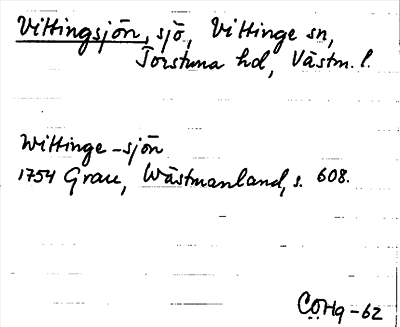 Vittingsjön, sjö, Vittinge sn,
Torstuna hd, Västm. l.
Wittinge-sjön
1754 Grau, Wästmanland, s. 608.
COHq-62